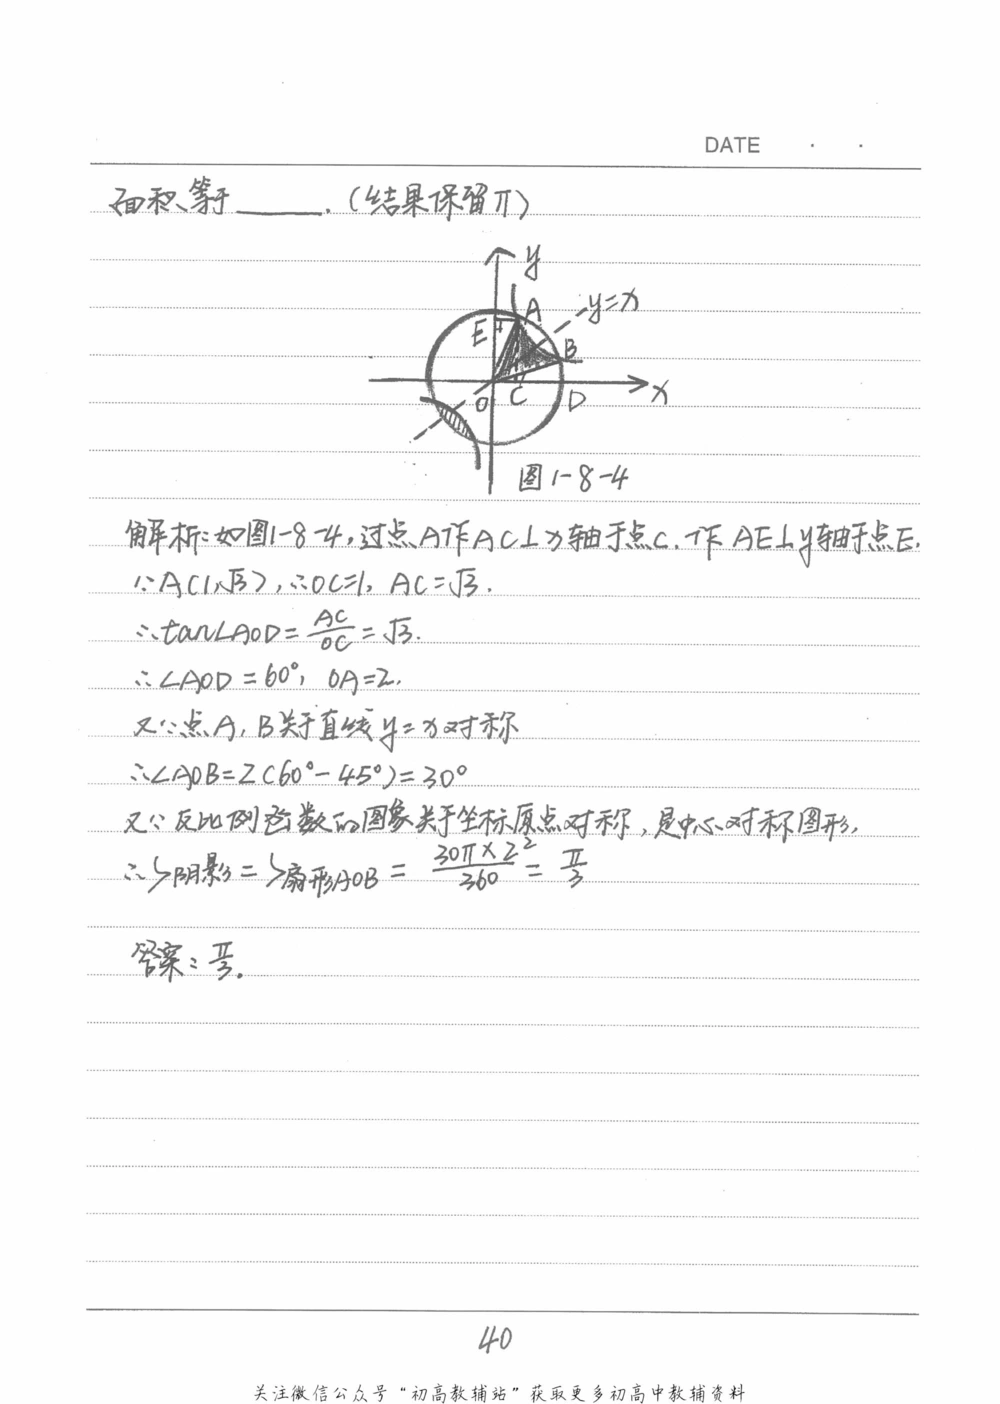 DATE · ·
面积等于______.(结果保留π)
y
A
y=x
E
B
O C D x
图1-8-4
解析:如图1-8-4,过点A作AC⊥x轴于点C.作AE⊥y轴于点E.
∵A(1,√3),∴OC=1, AC=√3.
∴tan∠AOD=AC/OC=√3.
∴∠AOD=60°, OA=2.
又∵点A,B关于直线y=x对称
∴∠AOB=2(60°-45°)=30°
又∵反比例函数的图象关于坐标原点对称,是中心对称图形,
∴S阴影=S扇形AOB=30π×2²/360=π/3
答案:π/3.
40
关注微信公众号“初高教辅站”获取更多初高中教辅资料